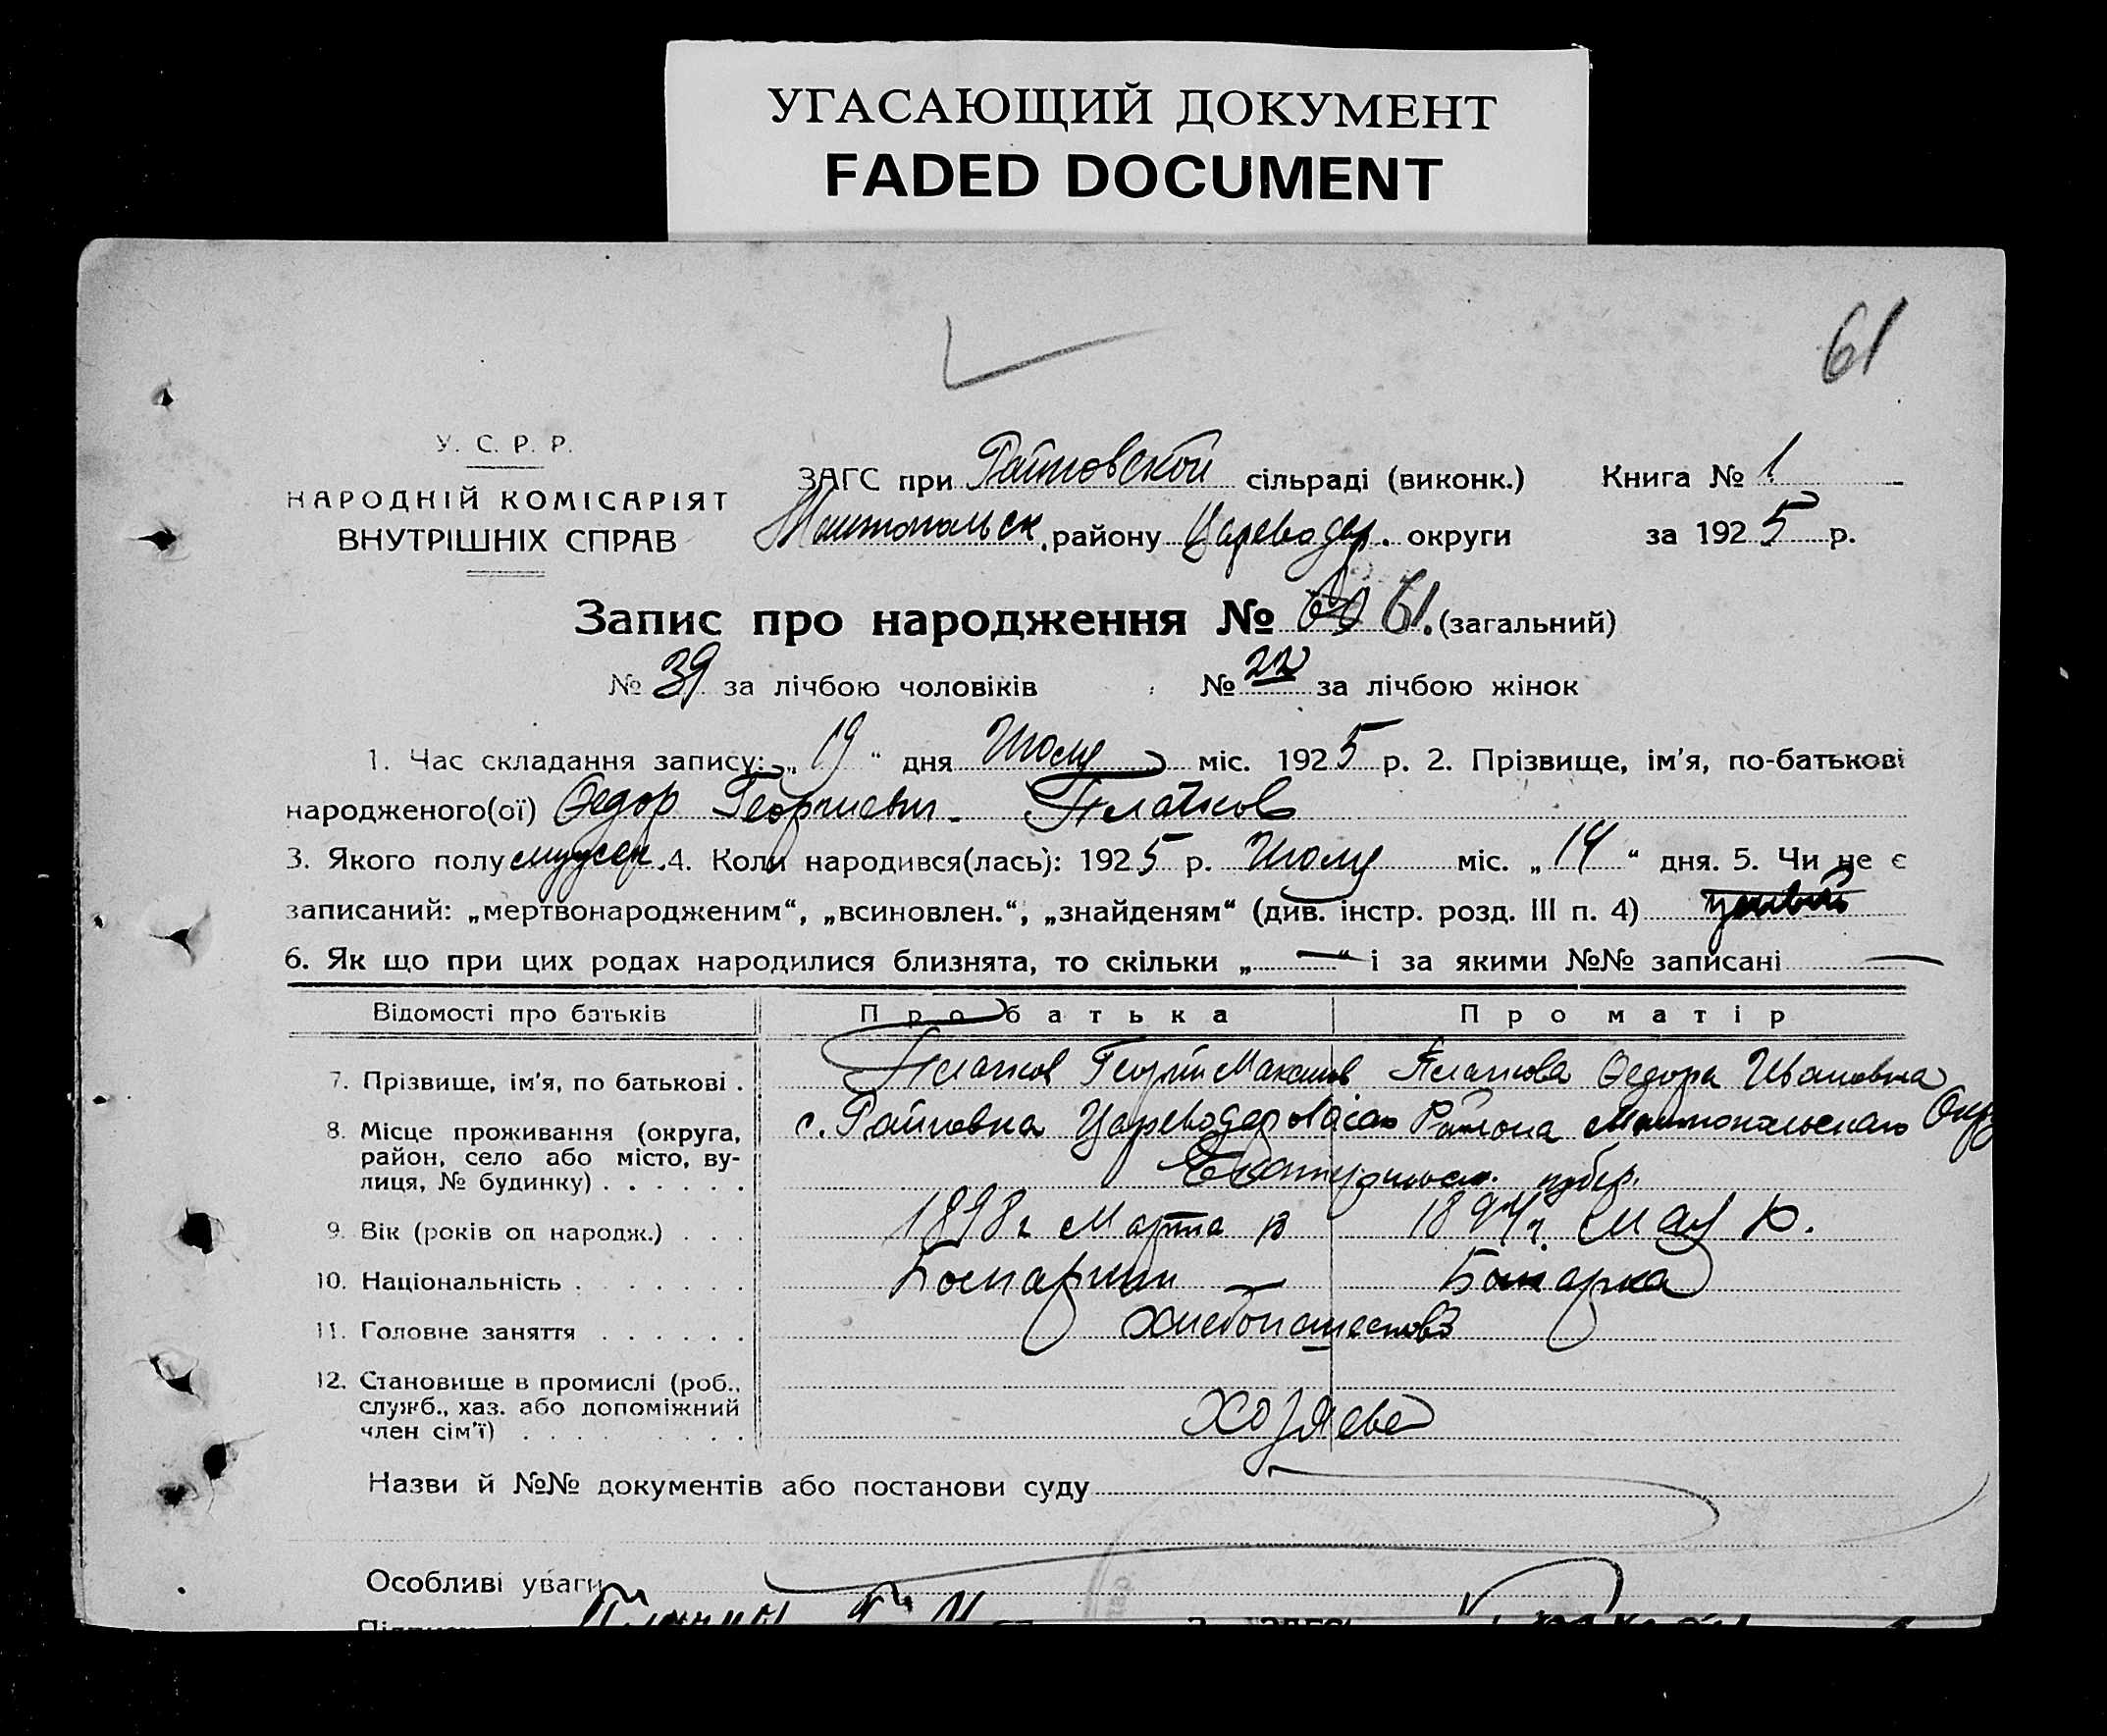 УГАСАЮЩИЙ ДОКУМЕНТ
FADED DOCUMENT
61
У. С. Р. Р.
НАРОДНІЙ КОМІСАРІЯТ
ВНУТРІШНІХ СПРАВ
ЗАГС при Райновской сільраді (виконк.) Книга № 1
району Цареводар. округи за 1925 р.
Запис про народження № 61. (загальний)
№ 39 за лічбою чоловіків № 22 за лічбою жінок
1. Час складання запису: „19“ дня Июля міс. 1925 р. 2. Прізвище, ім'я, по-батькові
народженого(ої) Федор Георгиевич Платков
3. Якого полу мужск. 4. Коли народився(лась): 1925 р. Июля міс. „14“ дня. 5. Чи не є
записаний: „мертвонародженим“, „всиновлен.“, „знайденям“ (див. інстр. розд. III п. 4)
6. Як що при цих родах народилися близнята, то скільки „—“ і за якими №№ записані —
Відомості про батьків Про батька Про матір
7. Прізвище, ім'я, по батькові . Платков Георгий Максимов Платкова Федора Ивановна
8. Місце проживання (округа, с. Райновка Цареводаровскаго Района Мелитопольскаго Окр
район, село або місто, ву-
лиця, № будинку) . . . . . . Екатериносл. губер.
9. Вік (років од народж.) . . . 1898 г Марта 1894 г. Мая 10.
10. Національність . . . . . . . Болгарин Болгарка
11. Головне заняття . . . . . . Хлебопашество
12. Становище в промислі (роб.,
служб., хаз. або допоміжний Хозяева
член сім'ї) . . . . . . . . .
Назви й №№ документів або постанови суду
Особливі уваги